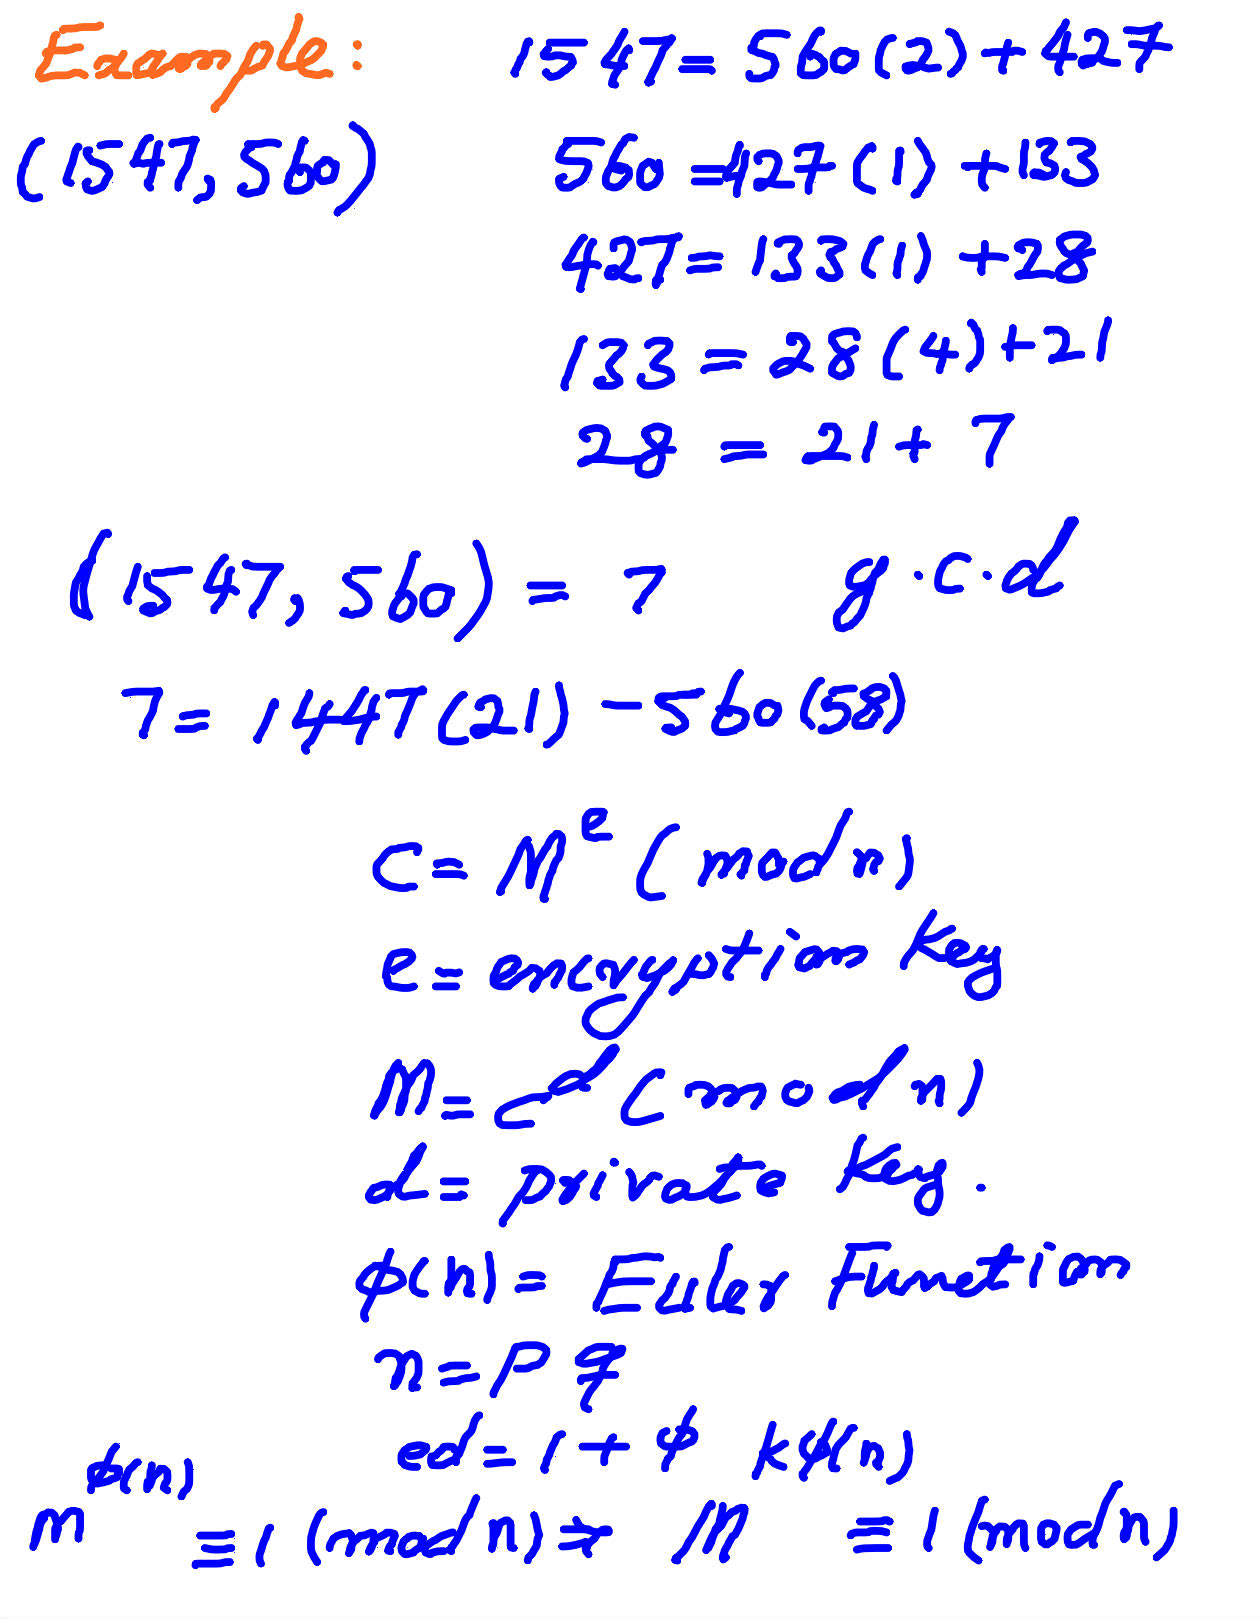 Example:
(1547, 560)
1547 = 560(2) + 427
560 = 427(1) + 133
427 = 133(1) + 28
133 = 28(4) + 21
28 = 21 + 7
(1547, 560) = 7 g.c.d
7 = 1447(21) - 560(58)
C = M^e (mod n)
e = encryption key
M = c^d (mod n)
d = private key.
φ(n) = Euler Function
n = p q
ed = 1 + φ kφ(n)
m^φ(n) ≡ 1 (mod n) ⇒ m ≡ 1 (mod n)